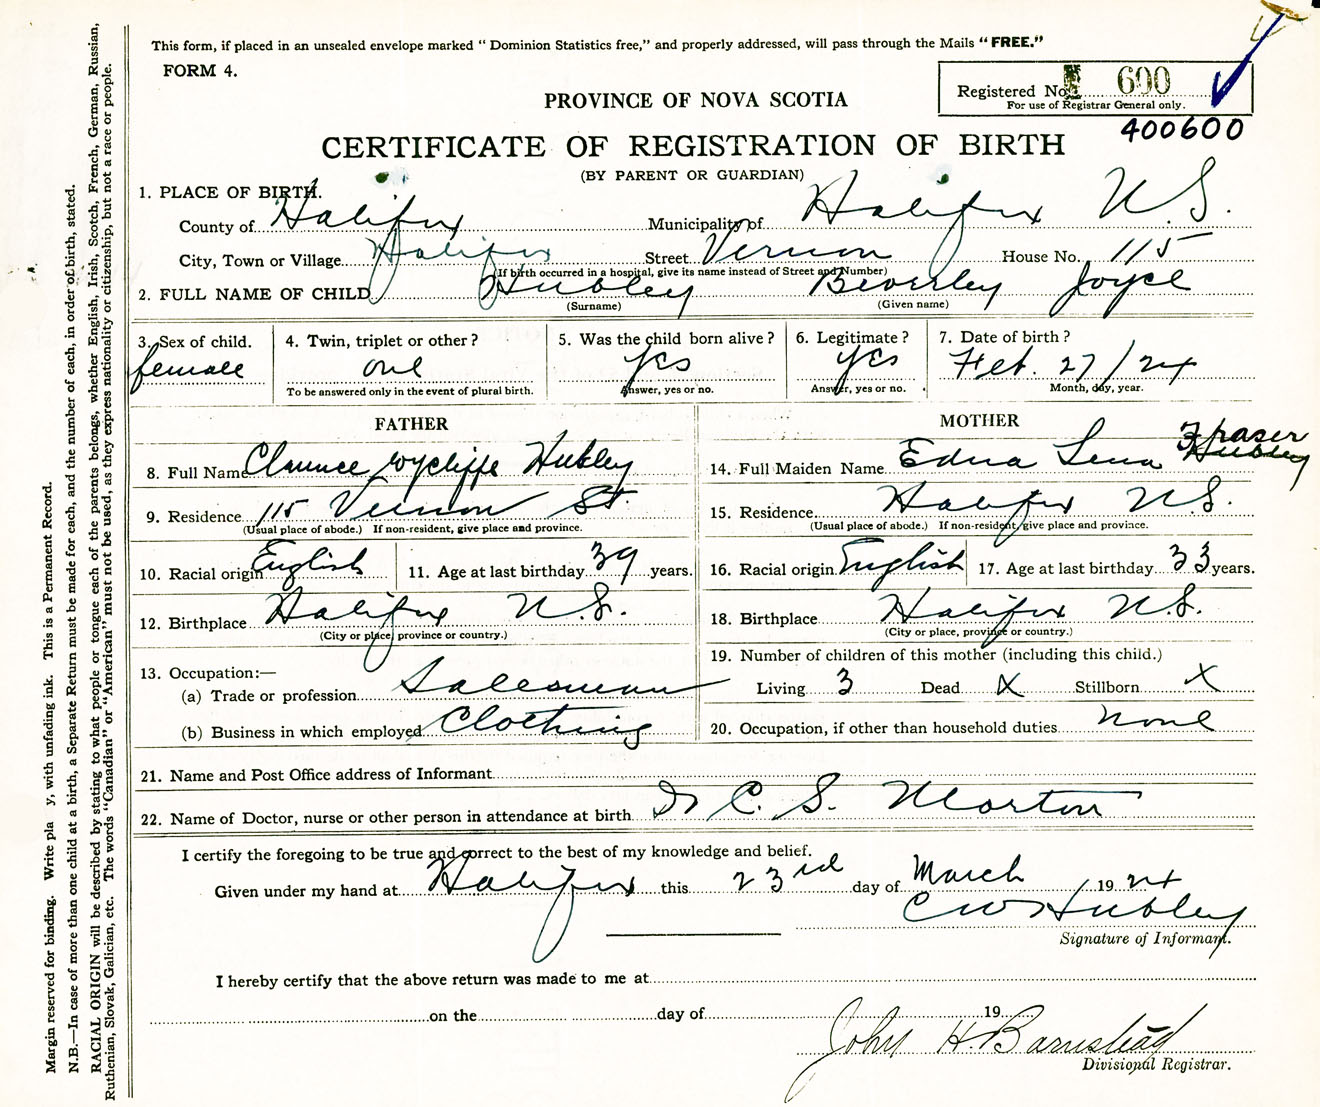 This form, if placed in an unsealed envelope marked " Dominion Statistics free," and properly addressed, will pass through the Mails "FREE."
FORM 4.
Registered No. 600
For use of Registrar General only.
400600
PROVINCE OF NOVA SCOTIA
CERTIFICATE OF REGISTRATION OF BIRTH
(BY PARENT OR GUARDIAN)
1. PLACE OF BIRTH.
County of Halifax Municipality of Halifax N.S.
City, Town or Village Halifax Street Vernon House No. 115
(If birth occurred in a hospital, give its name instead of Street and Number)
2. FULL NAME OF CHILD Hubley Beverley Joyce
(Surname) (Given name)
3. Sex of child. 4. Twin, triplet or other? 5. Was the child born alive? 6. Legitimate? 7. Date of birth?
female one yes yes Feb. 27/24
To be answered only in the event of plural birth. Answer, yes or no. Answer, yes or no. Month, day, year.
FATHER
8. Full Name Clarence Wycliffe Hubley
9. Residence 115 Vernon St.
(Usual place of abode.) If non-resident, give place and province.
10. Racial origin English 11. Age at last birthday 39 years.
12. Birthplace Halifax N.S.
(City or place, province or country.)
13. Occupation:—
(a) Trade or profession Salesman
(b) Business in which employed Clothing
MOTHER
Fraser
14. Full Maiden Name Edna Lena Hubley
15. Residence Halifax N.S.
(Usual place of abode.) If non-resident, give place and province.
16. Racial origin English 17. Age at last birthday 33 years.
18. Birthplace Halifax N.S.
(City or place, province or country.)
19. Number of children of this mother (including this child.)
Living 3 Dead X Stillborn X
20. Occupation, if other than household duties none
21. Name and Post Office address of Informant
22. Name of Doctor, nurse or other person in attendance at birth Dr C. S. Morton
I certify the foregoing to be true and correct to the best of my knowledge and belief.
Given under my hand at Halifax this 23rd day of March 1924
C W Hubley
Signature of Informant.
I hereby certify that the above return was made to me at
on the day of 19
John H. Barnstead
Divisional Registrar.
Margin reserved for binding. Write pla y, with unfading ink. This is a Permanent Record.
N.B.—In case of more than one child at a birth, a Separate Return must be made for each, and the number of each, in order of birth, stated.
RACIAL ORIGIN will be described by stating to what people or tongue each of the parents belongs, whether English, Irish, Scotch, French, German, Russian,
Ruthenian, Slovak, Galician, etc. The words "Canadian" or "American" must not be used, as they express nationality or citizenship, but not a race or people.